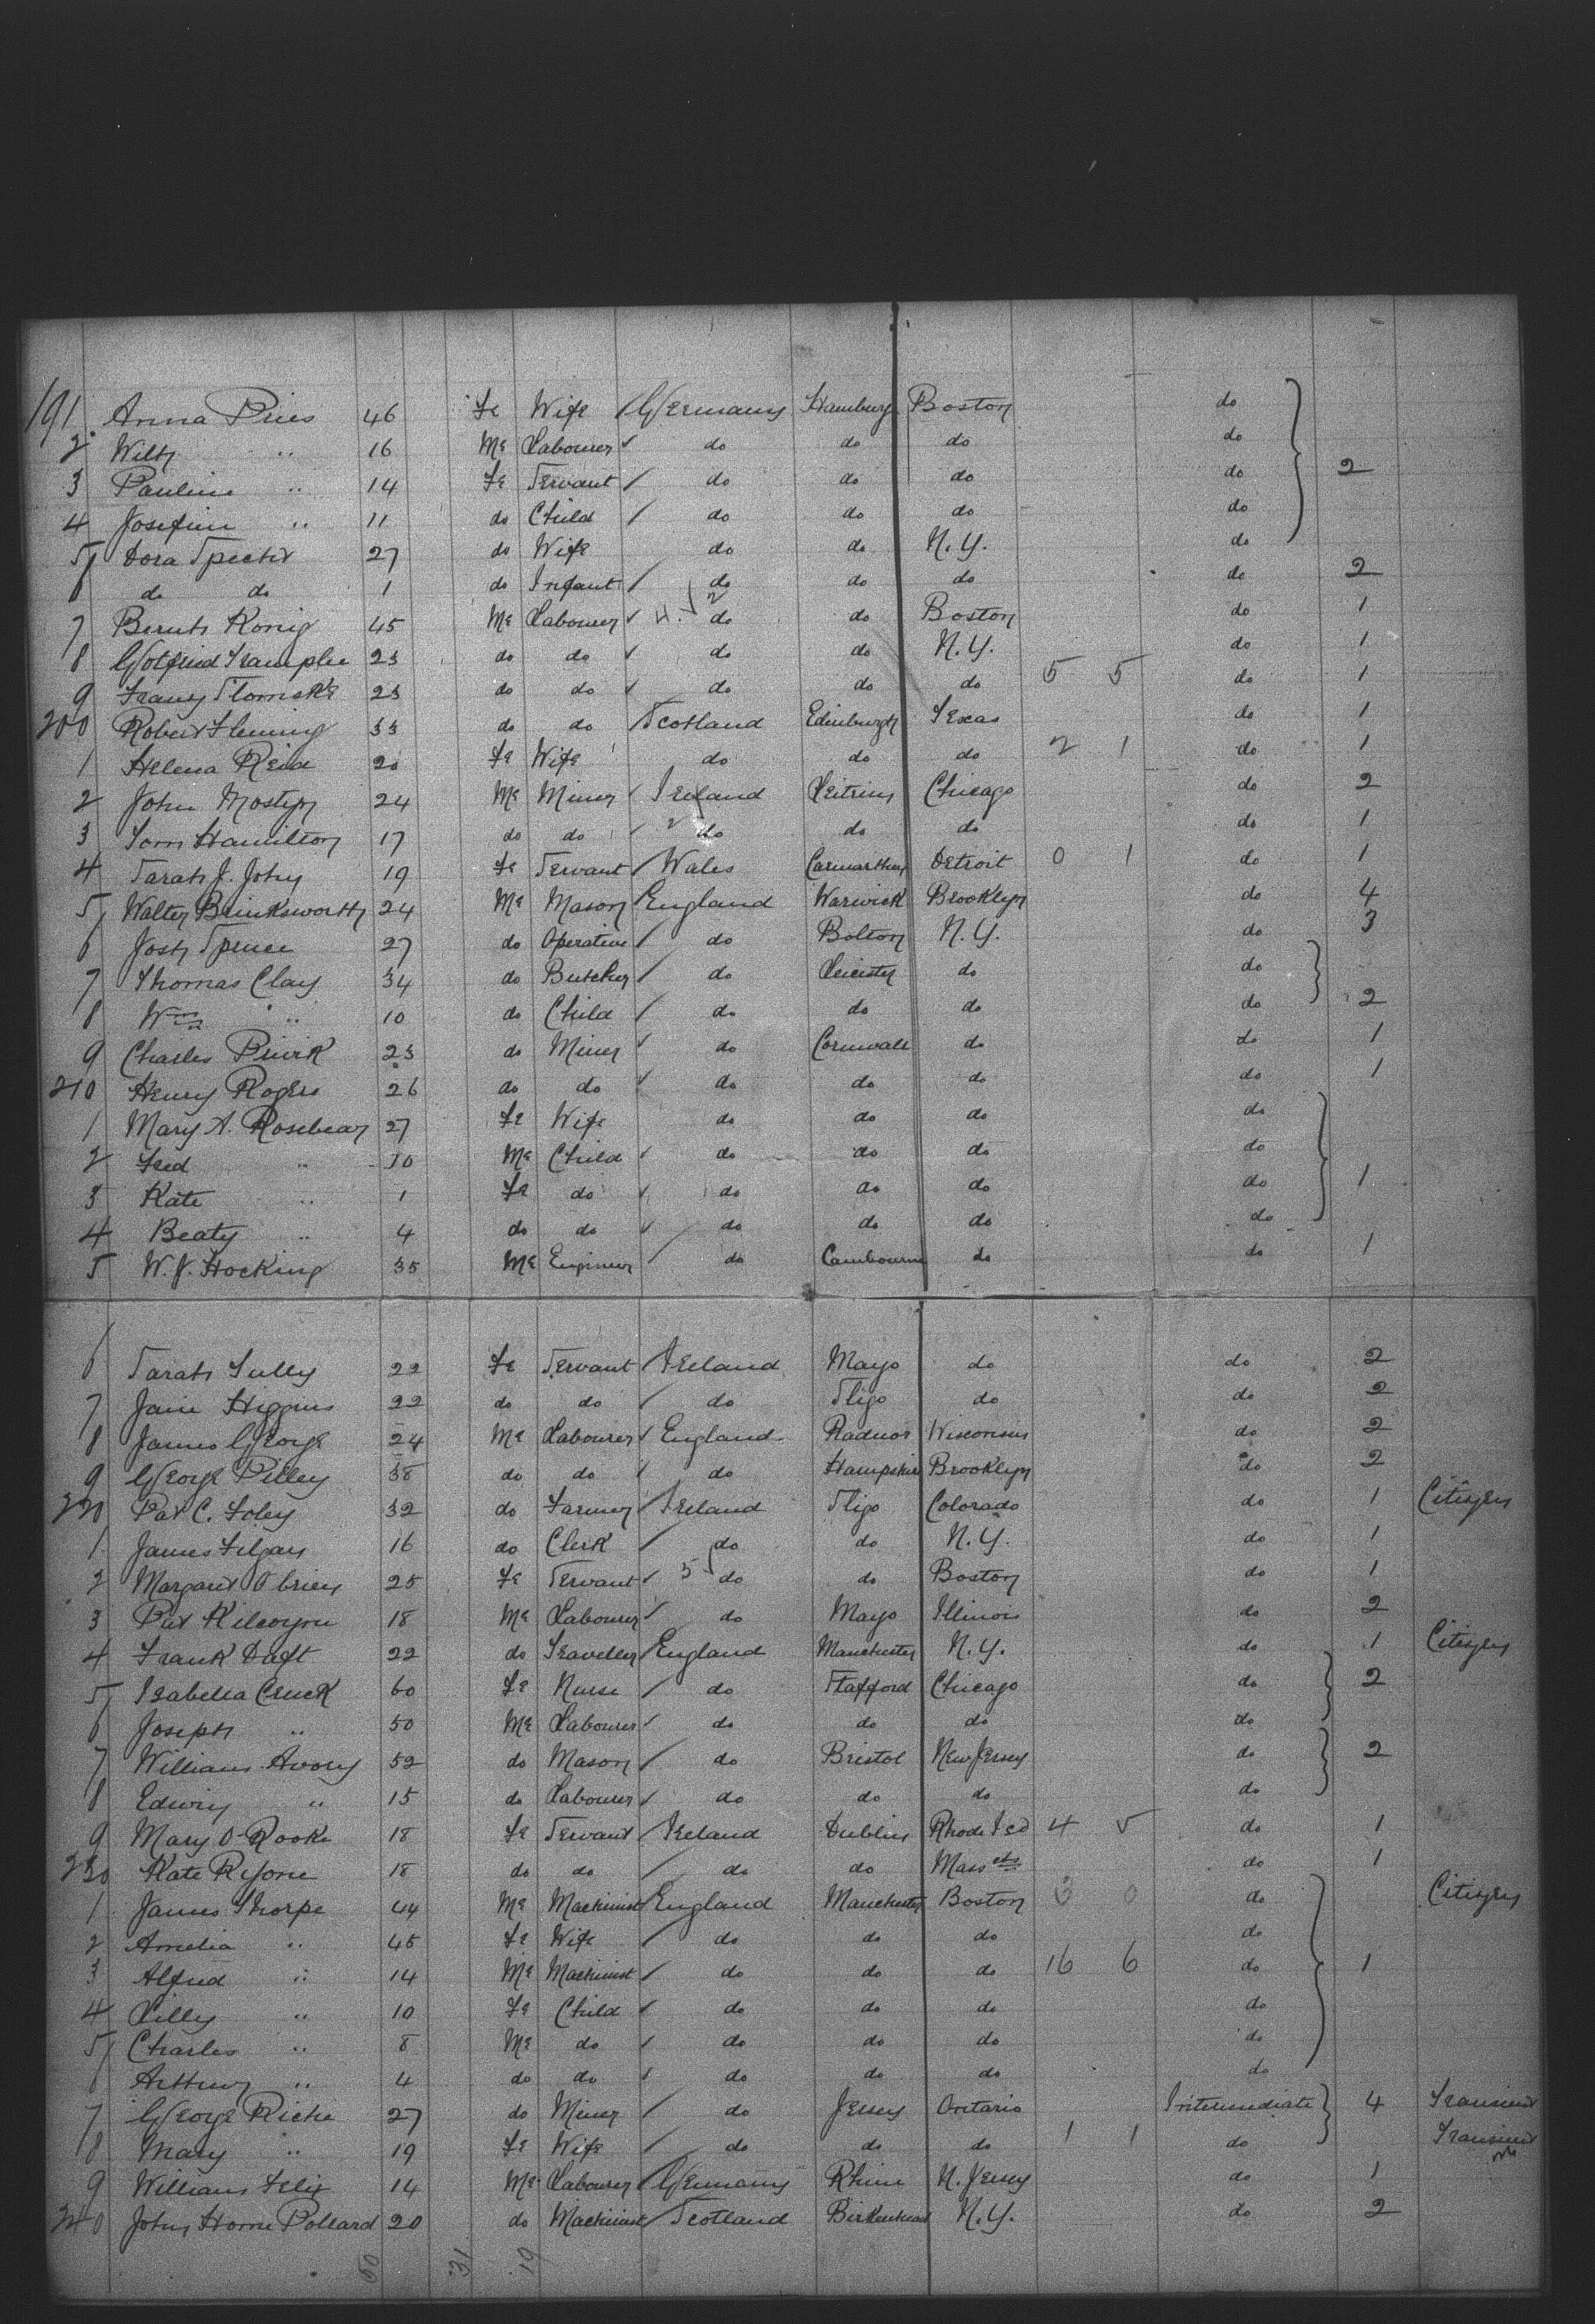 191. Anna Pries 46 Fe Wife / Germany Hamburg Boston do
2 Wilh " 16 Me Labourer / do do do do
3 Pauline " 14 Fe Servant / do do do do 2
4 Josefine " 11 do Child / do do do do
5 Dora 27 do Wife do do N.Y. do
6 do do 1 do Infant / do do do do 2
7 König 45 Me Labourer / do do Boston do 1
8 Gotfried 23 do do / do do N.Y. do 1
9 23 do do / do do do 5 5 do 1
200 Robert Fleming 33 do do / Scotland Edinburgh Texas do 1
1 Helena Reid 20 Fe Wife do do do 2 1 do 1
2 John Mostyn 24 Me Miner / Ireland Leitrim Chicago do 2
3 Tom Hamilton 17 do do / 2 do do do do 1
4 Sarah J. John 19 Fe Servant / Wales Carmarthen Detroit 0 1 do 1
5 Walter Brinksworth 24 Me Mason / England Warwick Brooklyn do 4
6 Josh Spruce 27 do Operative / do Bolton N.Y. do 3
7 Thomas Clay 34 do Butcher / do Leicester do do
8 Wm " 10 do Child / do do do do 2
9 Charles 23 do Miner / do Cornwall do do 1
210 Henry Rogers 26 do do / do do do do 1
1 Mary A. Rosebear 27 Fe Wife do do do do
2 Fred " 10 Me Child / do do do do
3 Kate " 1 Fe do / do do do do 1
4 Beaty " 4 do do / do do do do
5 W. J. Hocking 35 Me Engineer / do Cambourne do do 1
6 Sarah Tully 22 Fe Servant / Ireland Mayo do do 2
7 Jane Higgins 22 do do / do Sligo do do 2
8 James George 24 Me Labourer / England Radnor Wisconsin do 2
9 George Pilley 38 do do / do Hampshire Brooklyn do 2
220 Pat C. Foley 32 do Farmer / Ireland Sligo Colorado do 1 Citizen
1 James Filgan 16 do Clerk / do do N.Y. do 1
2 Margaret O'brien 25 Fe Servant / 5 do do Boston do 1
3 Pat Kilcoyne 18 Me Labourer / do Mayo Illinois do 2
4 Frank Daft 22 do Traveller / England Manchester N.Y. do 1 Citizen
5 Isabella Cruck 60 Fe Nurse / do Stafford Chicago do 2
6 Joseph " 50 Me Labourer / do do do do
7 William Avory 52 do Mason / do Bristol New Jersey do 2
8 Edwin " 15 do Labourer / do do do do
9 Mary O-Rooke 18 Fe Servant / Ireland Dublin Rhode Isd 4 5 do 1
230 Kate 18 do do / do do Massets do 1
1 James Thorpe 44 Me Machinist / England Manchester Boston 3 0 do Citizen
2 Amelia " 45 Fe Wife / do do do do
3 Alfred " 14 Me Machinist / do do do 16 6 do 1
4 Lilly " 10 Fe Child / do do do do
5 Charles " 8 Me do / do do do do
6 Arthur " 4 do do / do do do do
7 George Riche 27 do Miner / do Jersey Ontario Intermediate 4 Transient
8 Mary " 19 Fe Wife / do do do 1 1 do Transient
9 William Felix 14 Me Labourer / Germany Rhine N. Jersey do 1
240 John Horne Pollard 20 do Machinist / Scotland Birkenhead N.Y. do 2
50 31 19